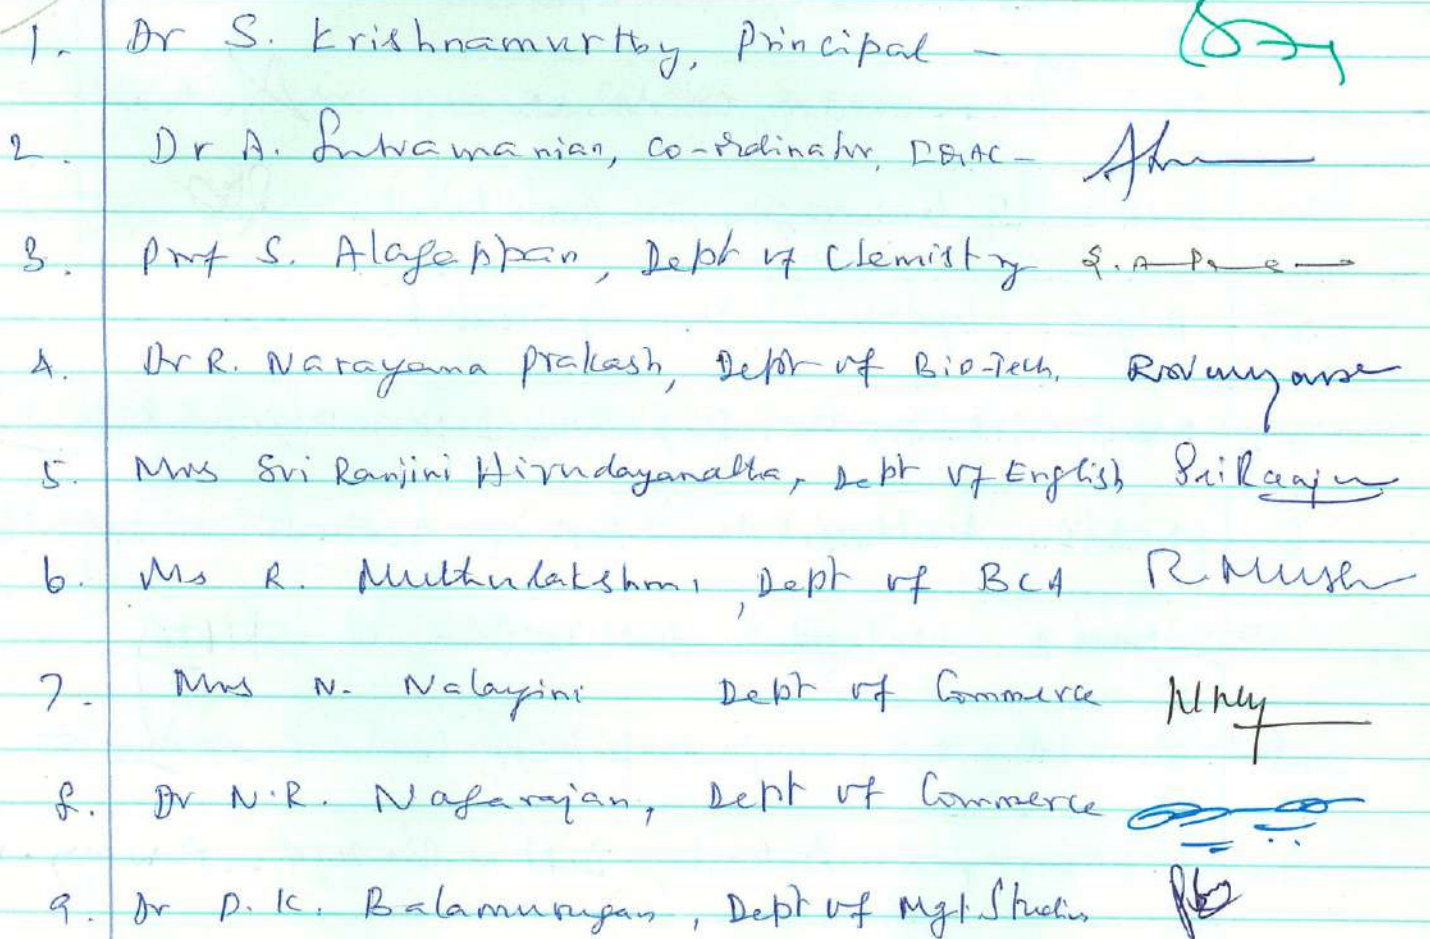 1. Dr S. Krishnamurthy, Principal -
2. Dr A. Subramanian, Co-ordinator, IQAC -
3. Prof S. Alagappan, Dept of Chemistry
4. Dr R. Narayana Prakash, Dept of Bio-Tech.
5. Mrs Sri Ranjini Hirudayanatha, Dept of English
6. Ms R. Muthulakshmi, Dept of BCA
7. Mrs N. Nalayini Dept of Commerce
8. Dr N.R. Nagarajan, Dept of Commerce
9. Dr P.K. Balamurugan, Dept of Mgt. Studies